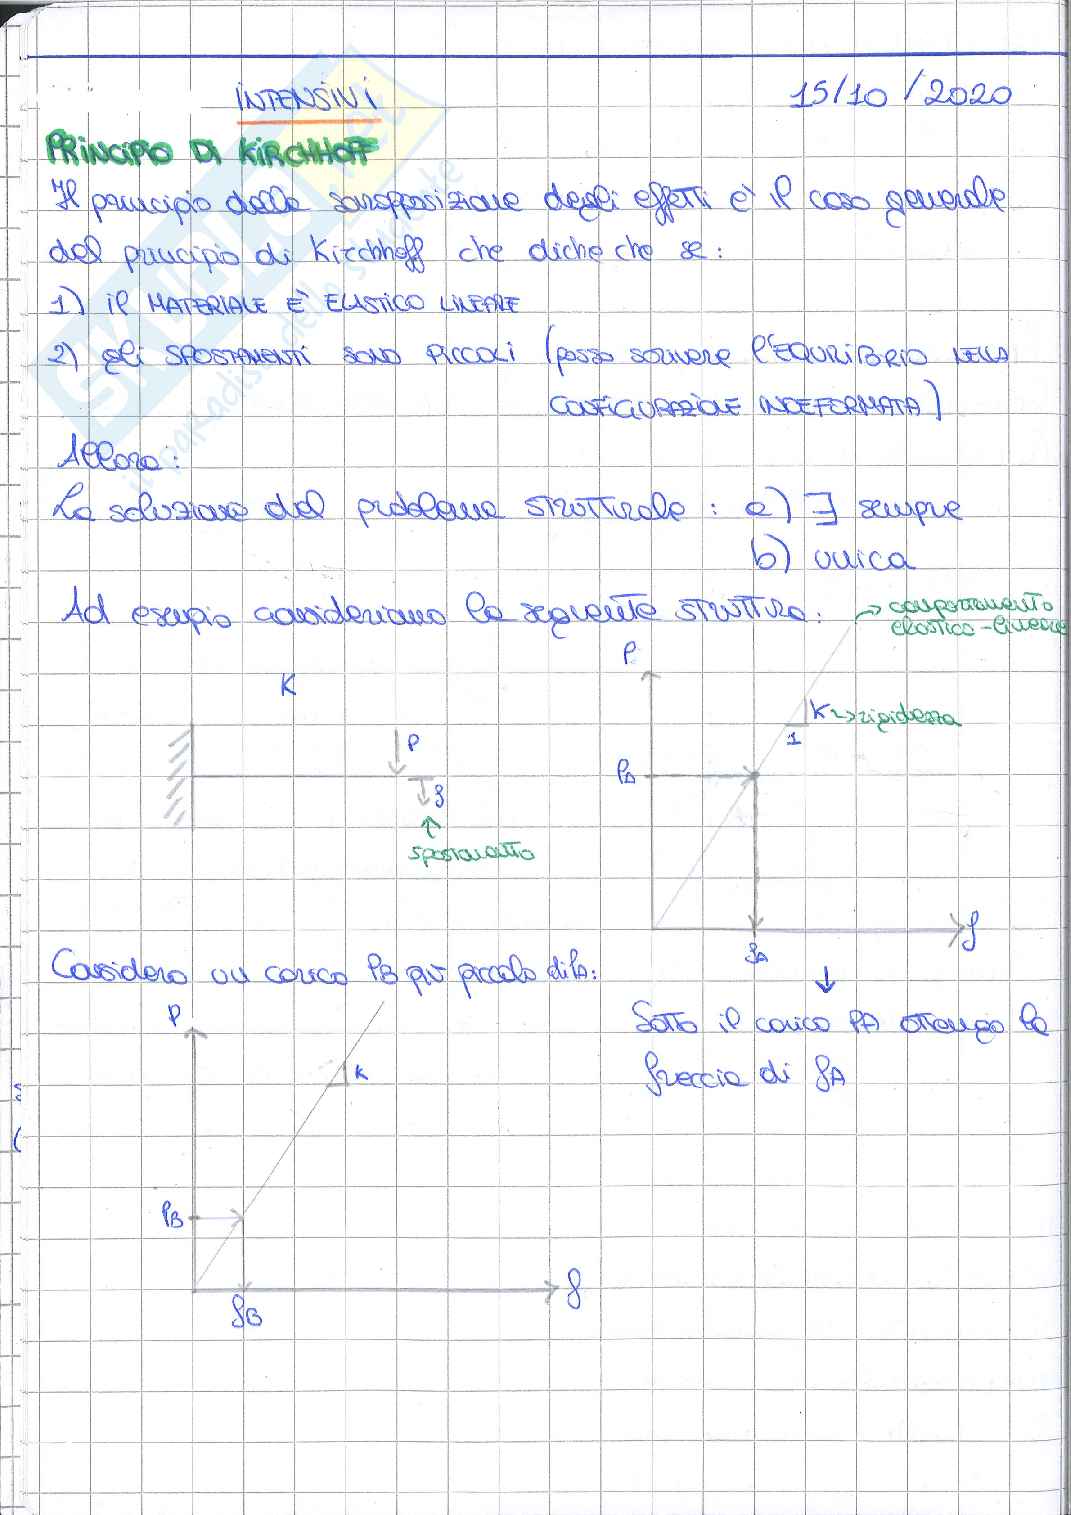 INTENSIVI
15/10/2020
PRINCIPIO DI KIRCHHOFF
Il principio della sovrapposizione degli effetti è il caso generale
del principio di Kirchhoff che diche che se:
1) il MATERIALE E' ELASTICO LINEARE
2) gli SPOSTAMENTI SONO PICCOLI (posso scrivere l'EQUILIBRIO NELLA
CONFIGURAZIONE INDEFORMATA)
Allora:
La soluzione del problema strutturale: a) ∃ sempre
b) unica
Ad esempio consideriamo la seguente struttura:
→ comportamento
elastico-lineare
P
K
K → rigidezza
1
P
PA
f
spostamento
f
fA
Considero un carico PB più piccolo di PA:
P
Sotto il carico PA ottengo la
freccia di fA
K
PB
f
fB